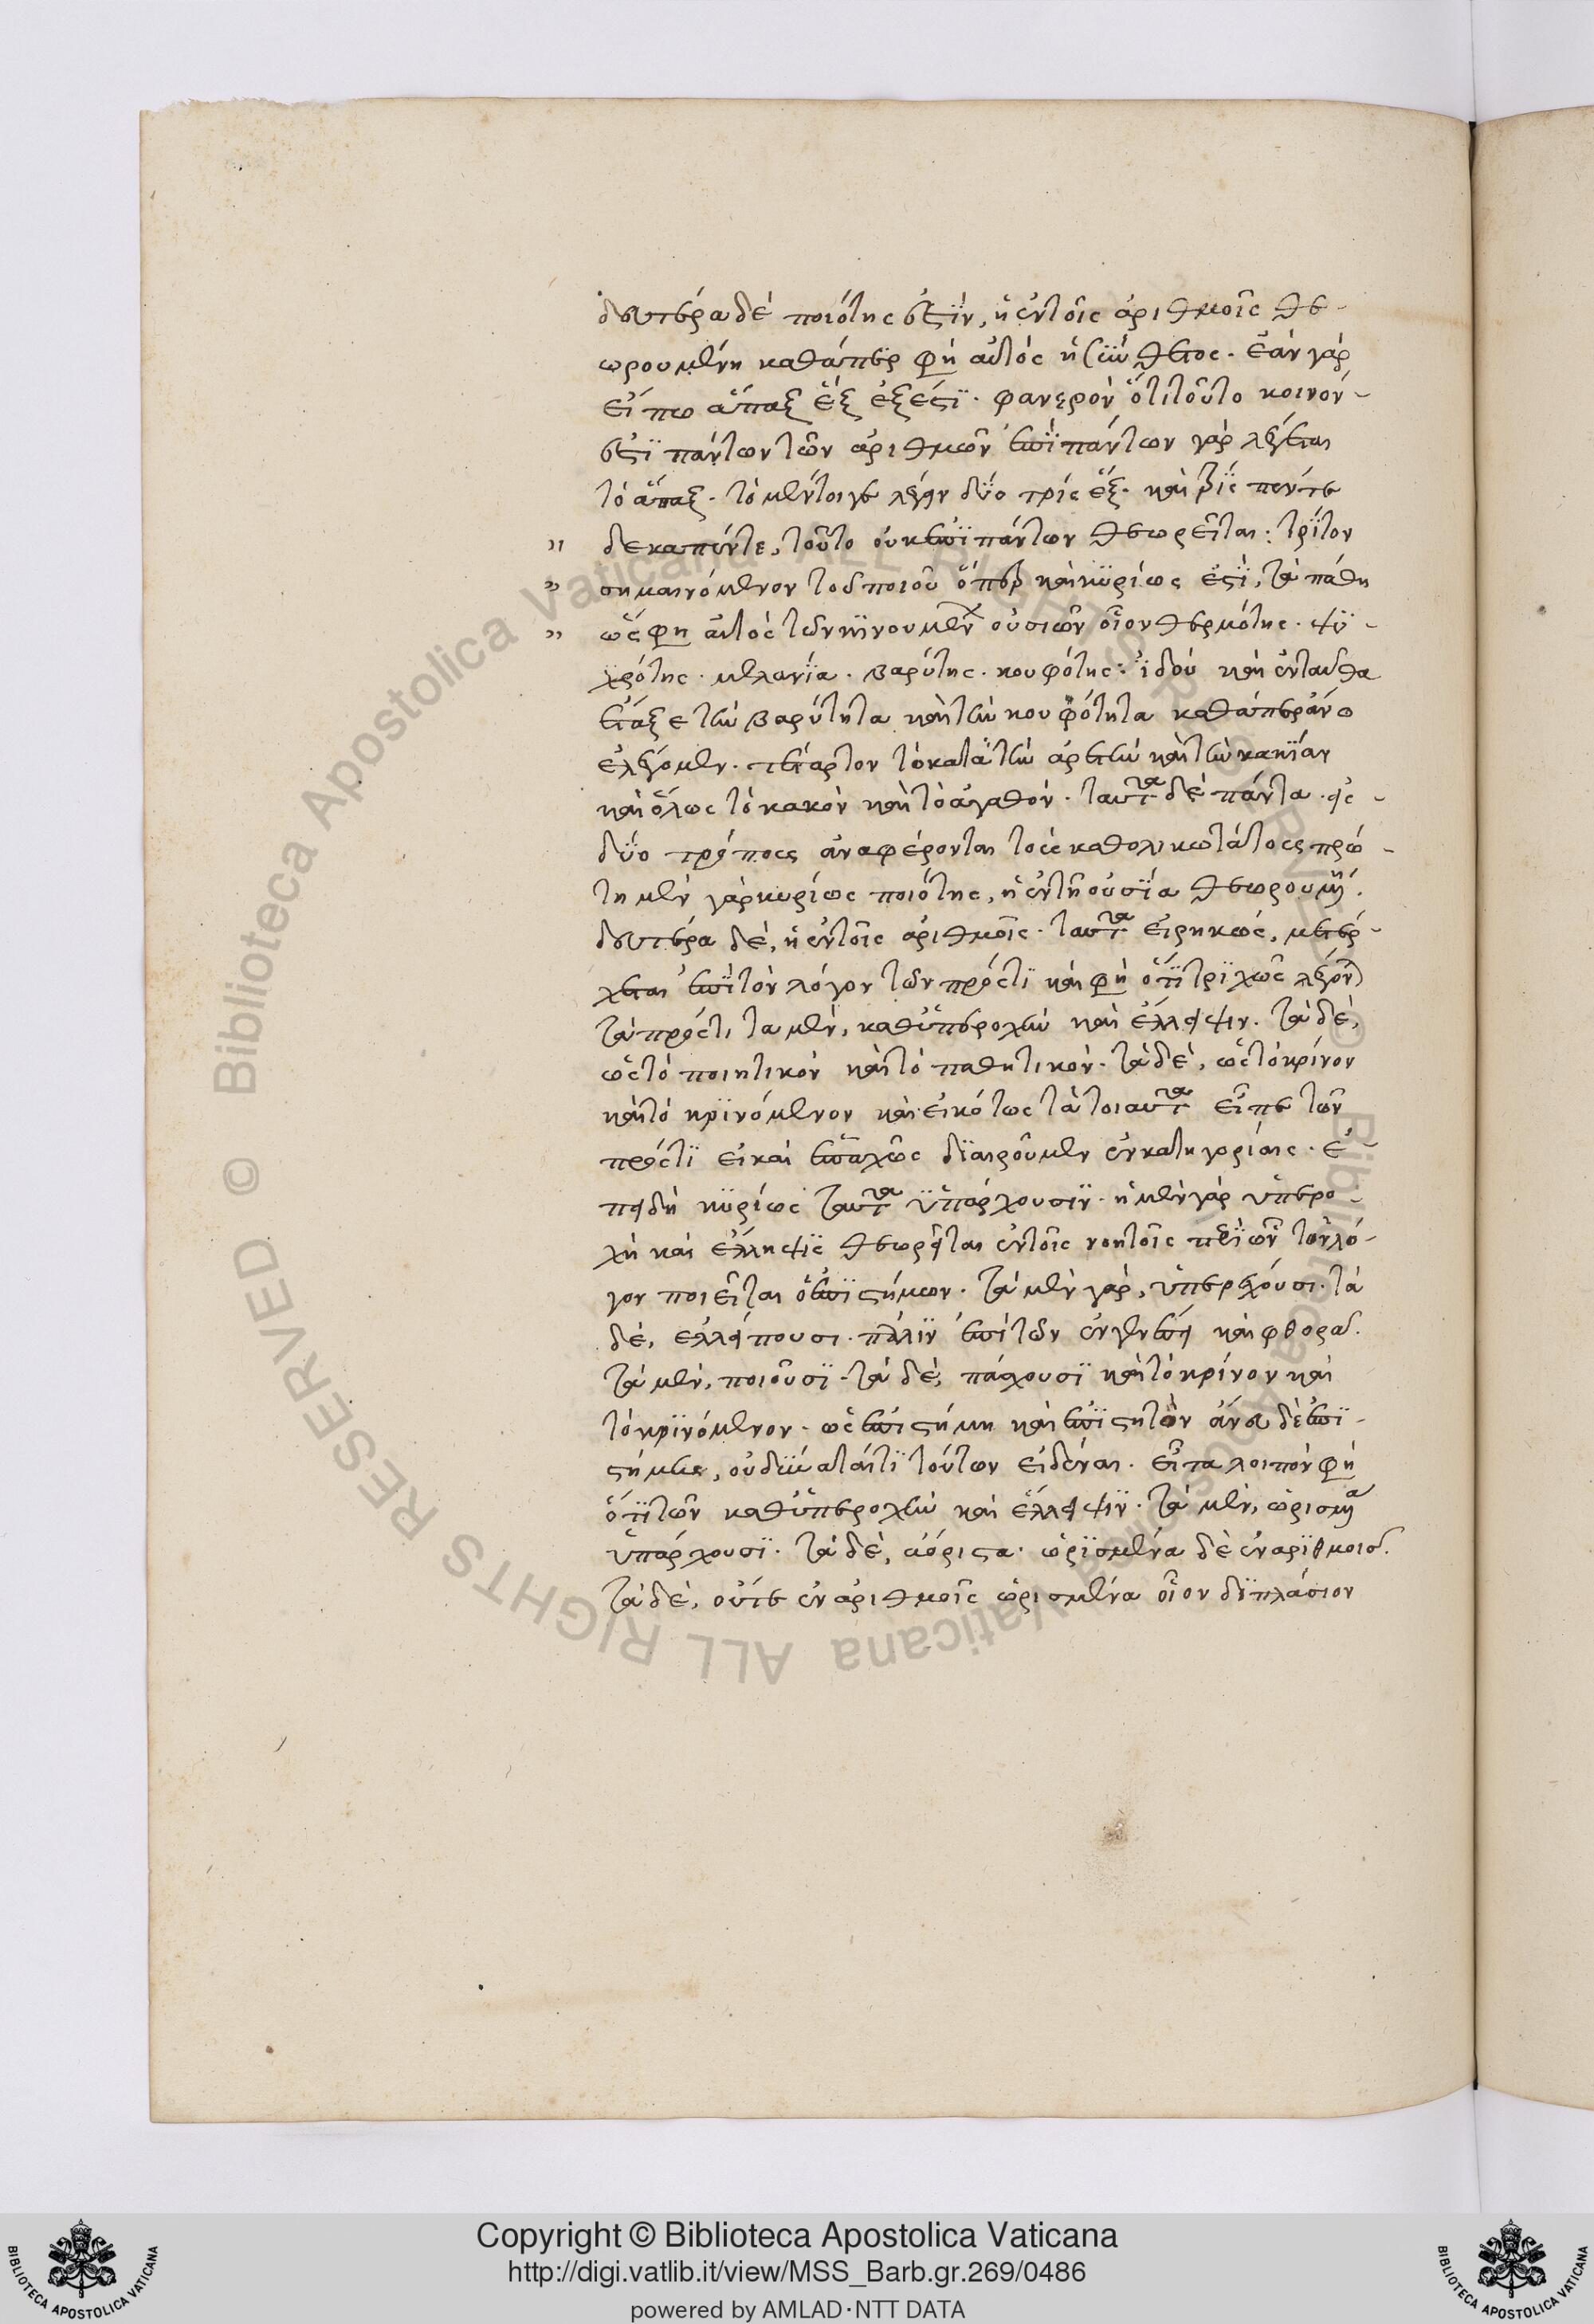 δευτέρα δέ ποιότης ἐστϊν, ἡ ἐν τοῖς ἀριθμοῖς θε-
ωρουμένη καθάπερ φη αὐτός ἡ σύνθετος. ἐάν γάρ
εἴπω ἅπαξ ἕξ ἐξέστϊ. φανερόν ὅτι τοῦτο κοινόν-
ἐστϊ πάντων τῶν ἀριθμῶν ἐπϊ πάντων γάρ λέγεται
τό ἅπαξ. τό μέντοιγε λέγειν δϋο τρίς ἕξ. καὶ τρϊς πέντε
" δεκαπέντε, τοῦτο οὐκ ἐπϊ πάντων θεωρεῖται: τρϊτον
" σημαινόμενον τοῦ ποιοῦ ὅπερ καὶ κϋρίως ἐστϊ, τὰ πάθη
" ὥς φη αὐτός τῶν κϊνουμένων οὐσιῶν οἷον θερμότης. ψϋ-
χρότης. μελανϊα. βαρύτης. κουφότης: ἰδού καὶ ἐνταυθα
ἔταξε τὴν βαρύτητα καὶ τὴν κουφότητα καθάπερ ἄνω
ἐλέγομεν. τέταρτον τό κατὰ τὴν ἀρετήν καὶ τὴν κακϊαν
καὶ ὅλως τό κακόν καὶ τό ἀγαθόν. ταῦτα δέ πάντα. εἰς-
δϋο τρόπους ἀναφέρονται τούς καθολικωτάτους πρώ-
τη μέν γάρ κυρίως ποιότης, ἡ ἐν τῇ οὐσϊα θεωρουμένη.
δευτέρα δέ, ἡ ἐν τοῖς ἀριθμοῖς. ταῦτα εἰρηκώς, μετέρ-
χεται ἐπϊ τόν λόγον τῶν πρός τϊ καὶ φη ὅτϊ τρϊχῶς λέγονται
τὰ πρός τι τα μέν, καθ ὑπεροχήν καὶ ἔλλειψιν. τὰ δέ,
ὡς τό ποιητικόν καὶ τό παθητικόν. τὰ δέ, ὡς τό κρίνον
καὶ τό κρϊνόμενον καὶ εἰκότως τὰ τοιαῦτα εἶπε τῶν
πρός τϊ εἰ καὶ ἑπταχῶς δϊαιροῦμεν ἐν κατηγορίαις. ἐ-
πειδή κϋρίως ταῦτα ὑπάρχουσϊν. ἡ μέν γάρ ὑπερο-
χή καὶ ἔλληψϊς θεωρεῖται ἐν τοῖς νοητοῖς περϊ ὧν τόν λό-
γον ποιεῖται ὁ ἐπϊστήμων. τὰ μέν γάρ, ὑπερέχουσι. τὰ
δέ, ἐλλείπουσι. πάλϊν ἐπί τῶν ἐν γενέσει καὶ φθορᾶ.
τὰ μέν, ποιοῦσϊ. τὰ δέ, πάσχουσϊ καὶ τό κρίνον καὶ
τό κρϊνόμενον. ὡς ἐπιστήμη καὶ ἐπϊστητόν ἄνευ δὲ ἐπϊ-
στήμης, οὐ δύναταί τϊ τούτων εἰδέναι. εἶτα λοιπόν φη
ὅτϊ τῶν καθ ὑπεροχήν καὶ ἔλλειψϊν. τὰ μέν, ὡρισμένα
ὑπάρχουσϊ. τὰ δέ, ἀόριστα. ὡρϊσμένα δὲ ἐν ἀρϊθμοισ.
τὰ δέ, οὔτε ἐν ἀριθμοῖς ὡρισμένα οἷον δϊπλάσιον
Copyright © Biblioteca Apostolica Vaticana
http://digi.vatlib.it/view/MSS_Barb.gr.269/0486
powered by AMLAD·NTT DATA